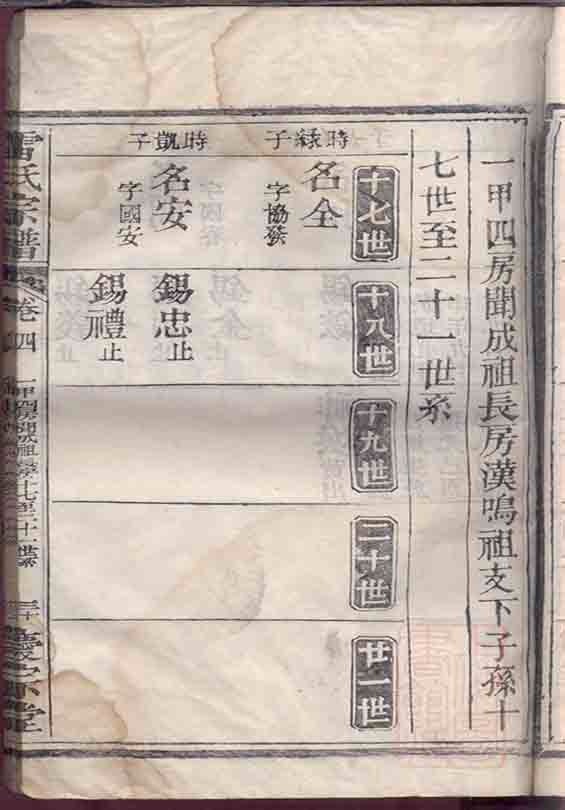 一甲四房聞成祖長房漢鳴祖支下子孫十
七世至二十一世系
十七世
十八世
十九世
二十世
廿一世
時緑子
名全
字協發
時凱子
名安
字國安
錫忠止
錫禮止
雷氏宗譜
卷四
一甲四房聞成祖
十七至二十一世系